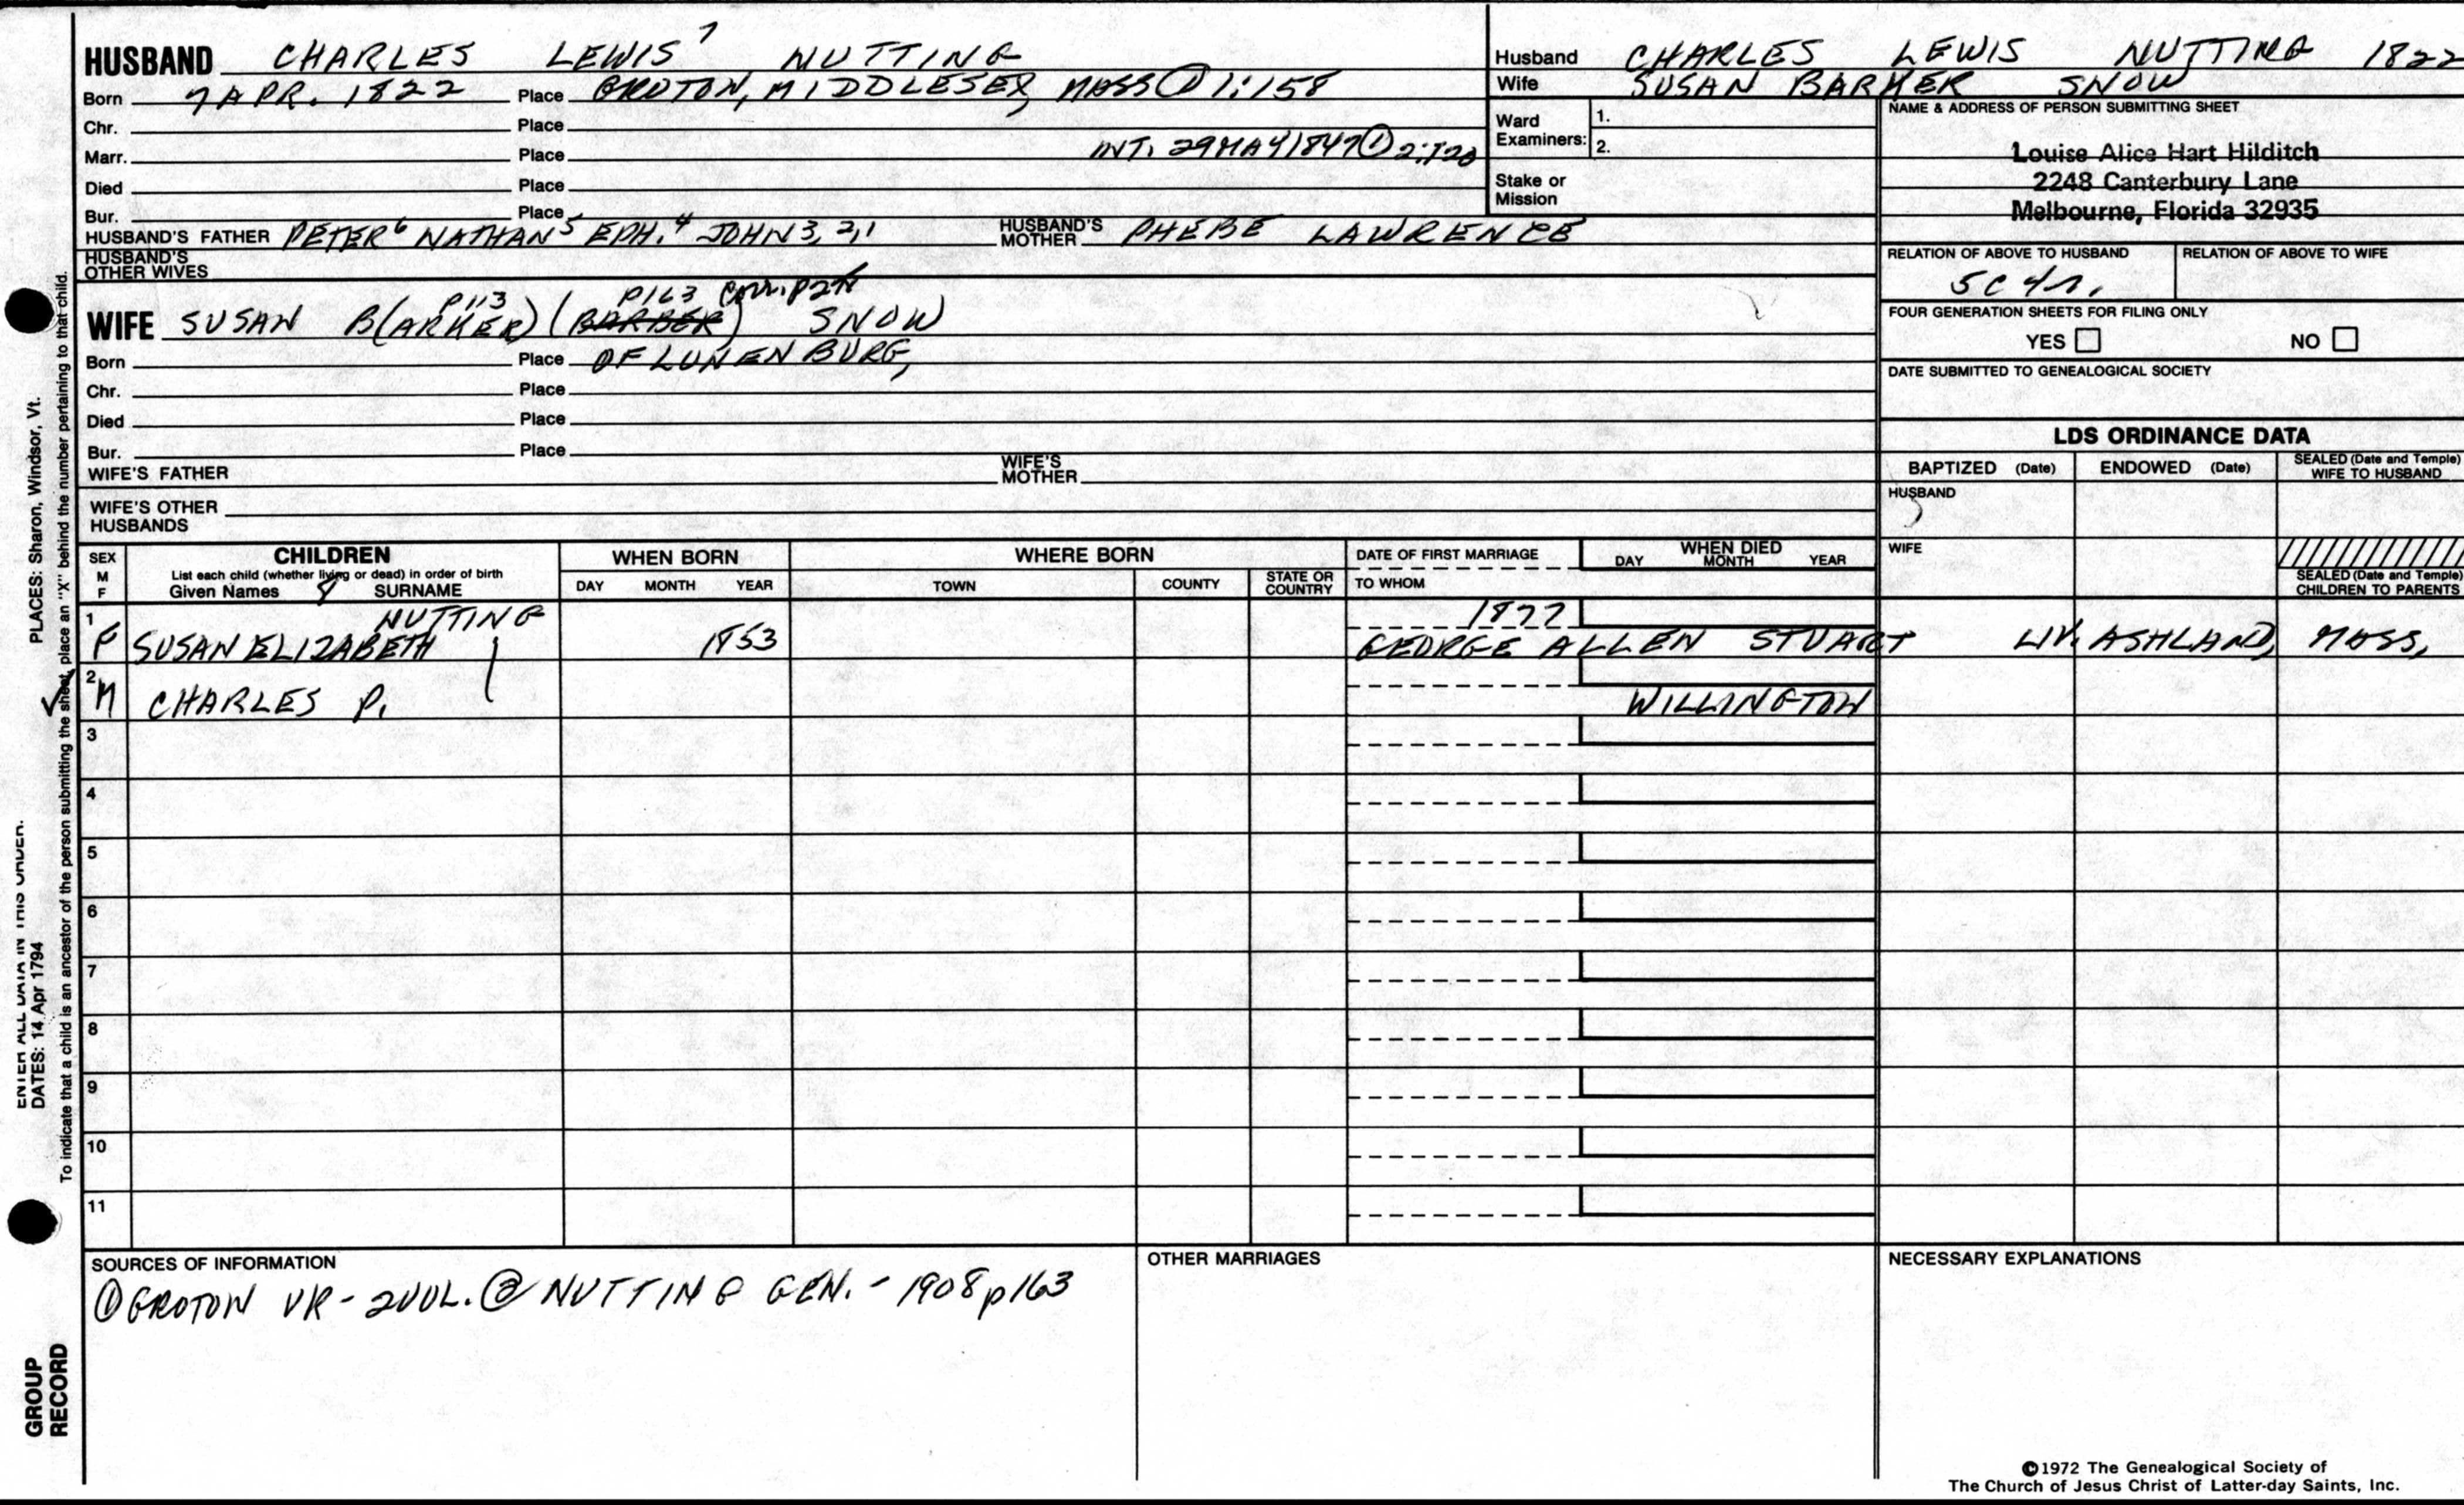 HUSBAND CHARLES LEWIS⁷ NUTTING
Born 7 APR. 1822 Place GROTON, MIDDLESEX, MASS ① 1:158
Chr. Place
Marr. Place INT. 29 MAY 1847 ① 2:120
Died Place
Bur. Place
HUSBAND'S FATHER PETER⁶ NATHAN⁵ EPH.⁴ JOHN 3, 2, 1 HUSBAND'S MOTHER PHEBE LAWRENCE
HUSBAND'S OTHER WIVES
P113 P163
WIFE SUSAN B(ARKER) (BARBER) SNOW
Born Place OF LUNENBURG,
Chr. Place
Died Place
Bur. Place
WIFE'S FATHER WIFE'S MOTHER
WIFE'S OTHER HUSBANDS
Husband CHARLES LEWIS NUTTING 1822
Wife SUSAN BARKER SNOW
Ward Examiners: 1.
2.
Stake or Mission
NAME & ADDRESS OF PERSON SUBMITTING SHEET
Louise Alice Hart Hilditch
2248 Canterbury Lane
Melbourne, Florida 32935
RELATION OF ABOVE TO HUSBAND RELATION OF ABOVE TO WIFE
5C 4r.
FOUR GENERATION SHEETS FOR FILING ONLY
YES NO
DATE SUBMITTED TO GENEALOGICAL SOCIETY
LDS ORDINANCE DATA
BAPTIZED (Date) ENDOWED (Date) SEALED (Date and Temple) WIFE TO HUSBAND
HUSBAND
WIFE
SEALED (Date and Temple) CHILDREN TO PARENTS
SEX M F
CHILDREN
List each child (whether living or dead) in order of birth
Given Names 8 SURNAME
WHEN BORN
DAY MONTH YEAR
WHERE BORN
TOWN COUNTY STATE OR COUNTRY
DATE OF FIRST MARRIAGE
TO WHOM
WHEN DIED
DAY MONTH YEAR
1 NUTTING 1877
F SUSAN ELIZABETH 1853 GEORGE ALLEN STUART LIV. ASHLAND, MASS,
2
M CHARLES P. WILLINGTON
3
4
5
6
7
8
9
10
11
SOURCES OF INFORMATION
① GROTON VR - 2 VOL. ② NUTTING GEN. - 1908 p163
OTHER MARRIAGES
NECESSARY EXPLANATIONS
©1972 The Genealogical Society of
The Church of Jesus Christ of Latter-day Saints, Inc.
PLACES: Sharon, Windsor, Vt.
To indicate that a child is an ancestor of the person submitting the sheet, place an "X" behind the number pertaining to that child.
ENTER ALL DATA IN THIS ORDER.
DATES: 14 Apr 1794
GROUP
RECORD